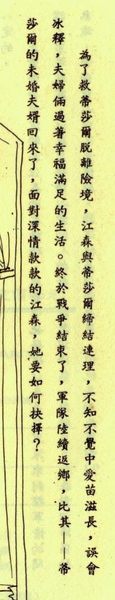 為了救蒂莎爾脫離險境，江森與蒂莎爾締結連理，不知不覺中愛苗滋長，誤會
冰釋，夫婦倆過著幸福滿足的生活。終於戰爭結束了，軍隊陸續返鄉，比其——蒂
莎爾的未婚夫婿回來了，面對深情款款的江森，她要如何抉擇？